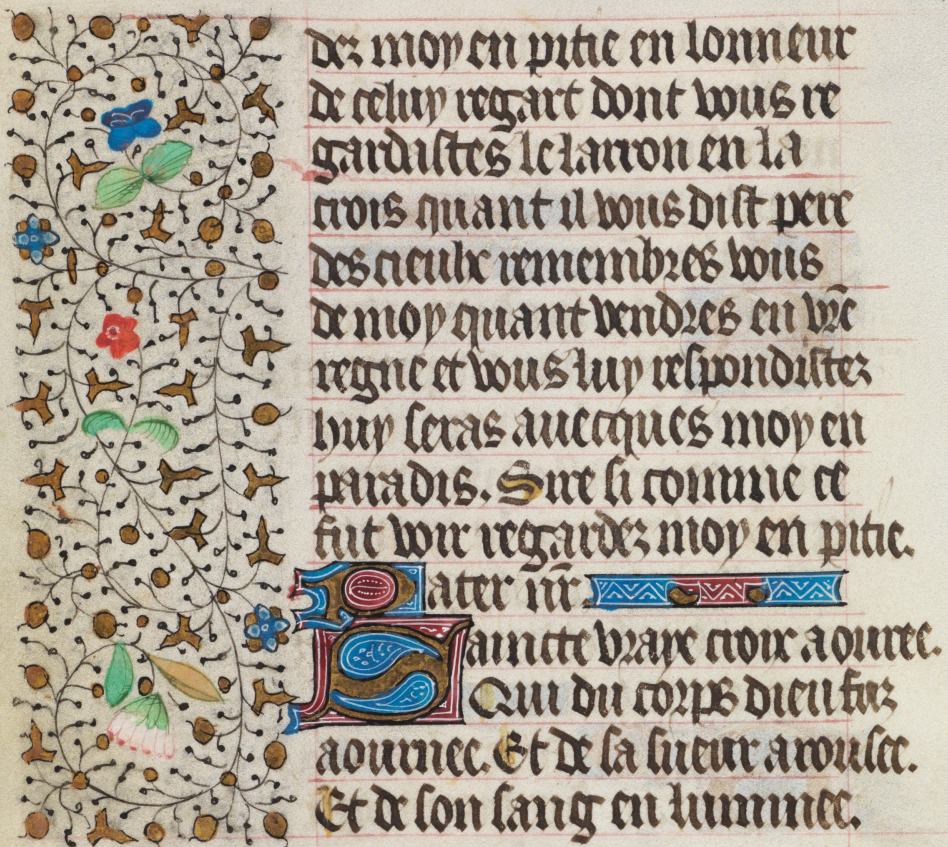 dez moy en pitie en lonneur
de celuy regart dont vous re
gardastes le larron en la
crois quant il vous dist pere
des cieulx remembres vous
de moy quant vendres en vr̄e
regne et vous luy respondistez
huy seras auecques moy en
paradis. Sire si comme ce
fut voir regardez moy en pitie.
Pater nr̄.
Saincte vraye croix aouree.
Qui du corps dieu fuz
aournee. Et de sa sueur arousee.
Et de son sang enluminee.